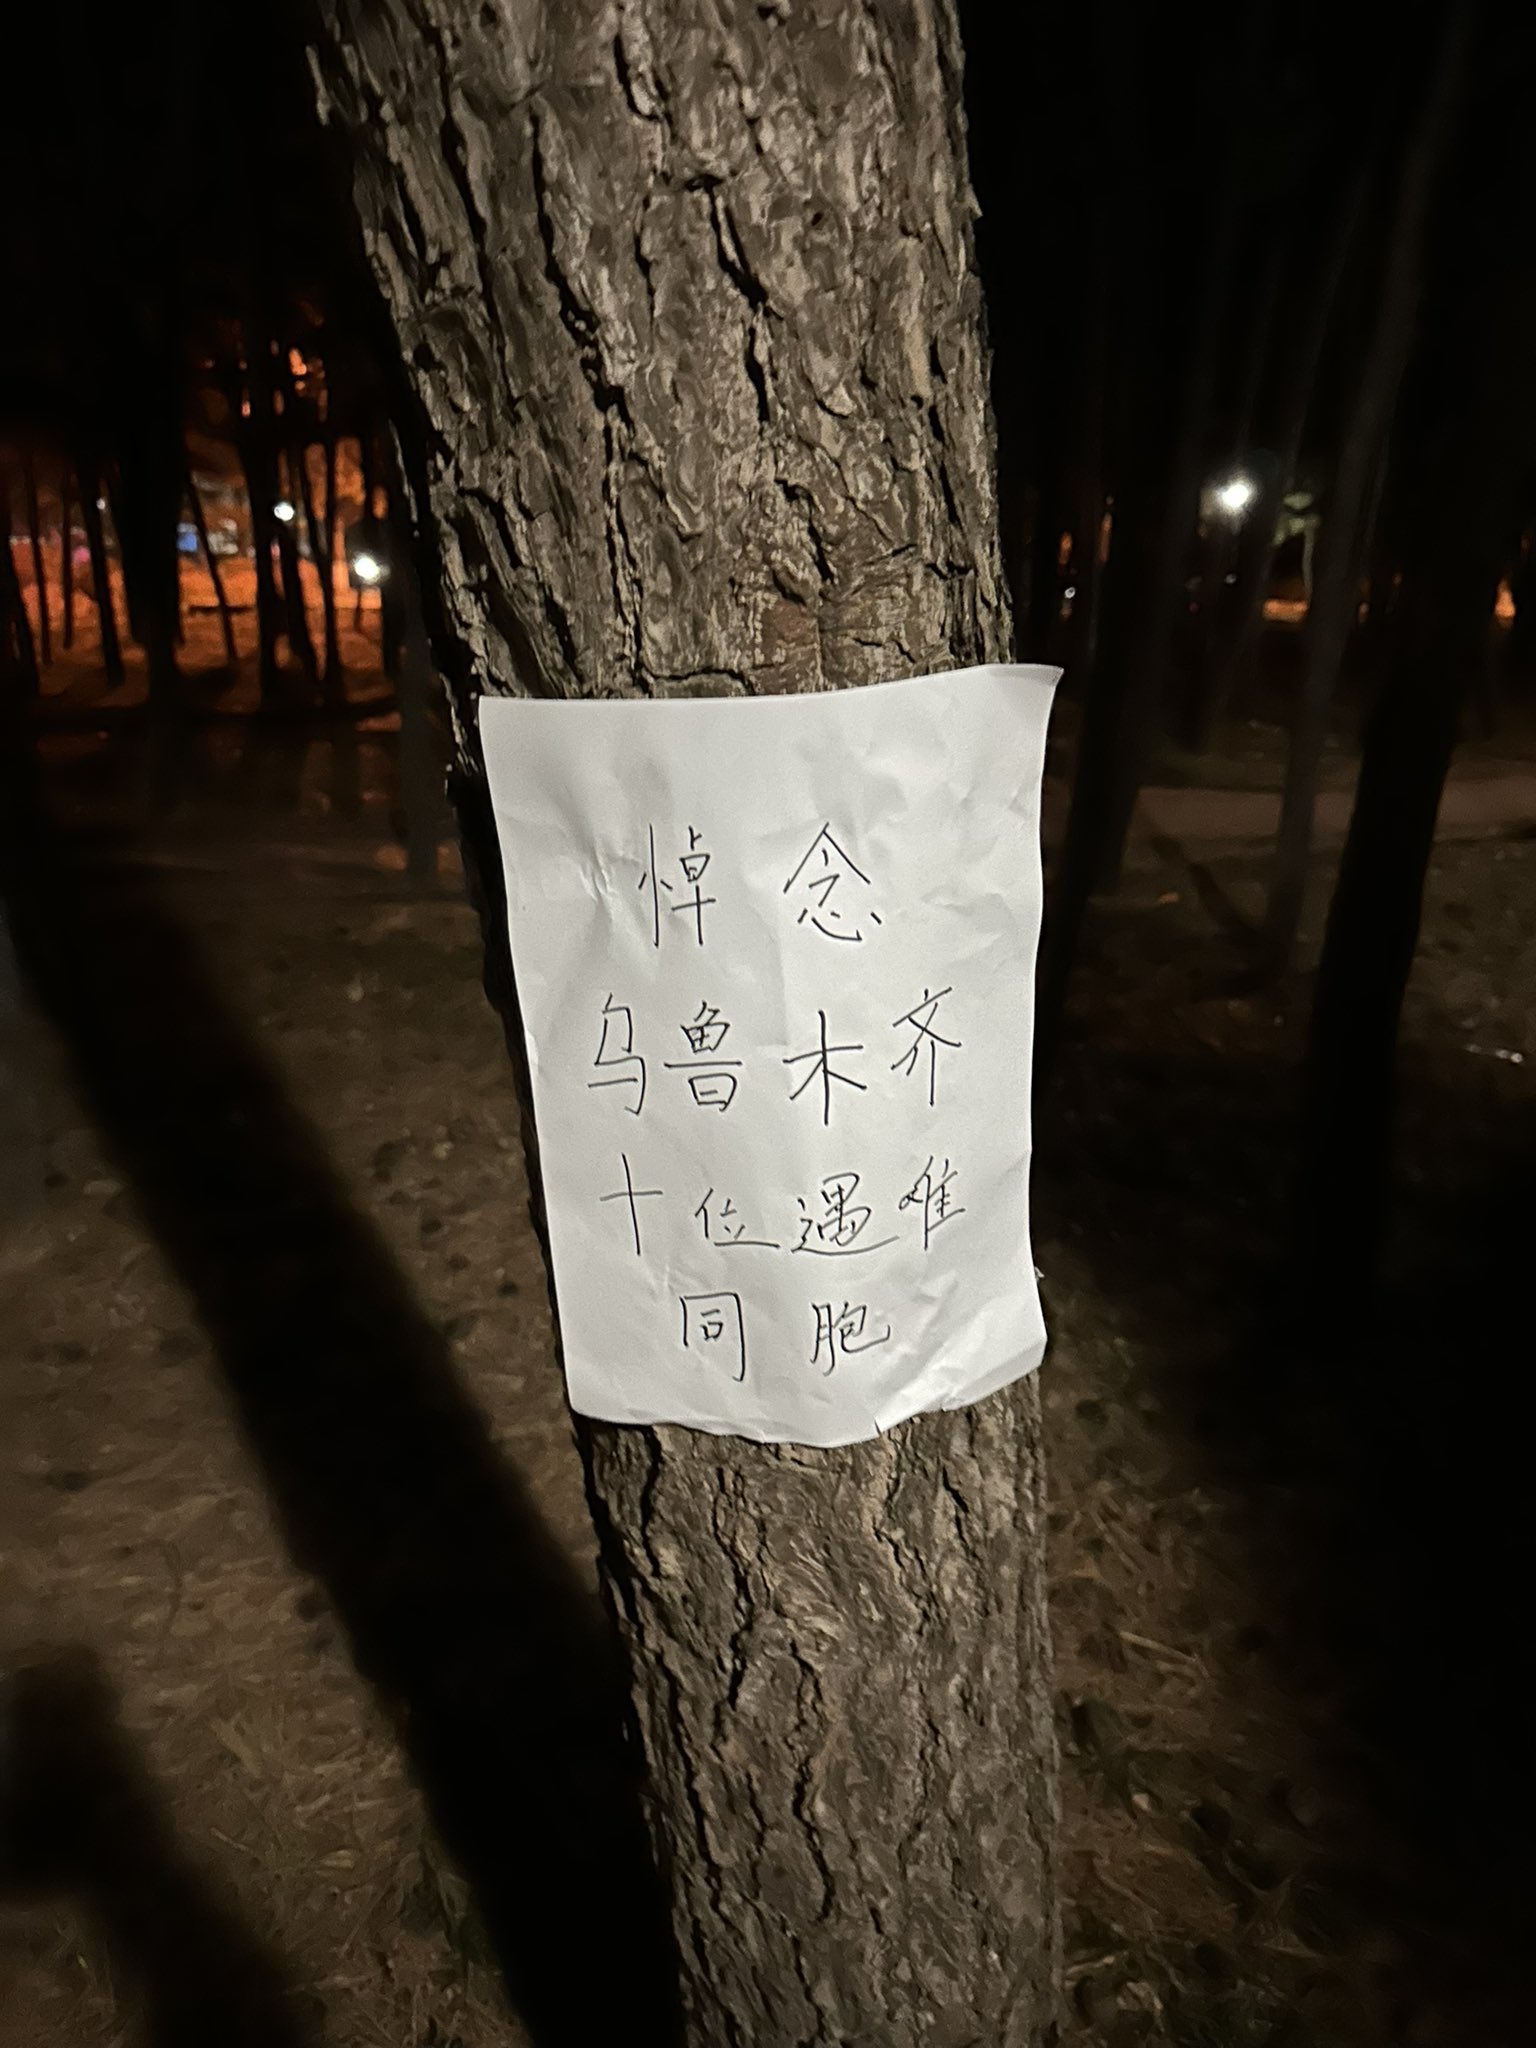 悼念
乌鲁木齐
十位遇难
同胞